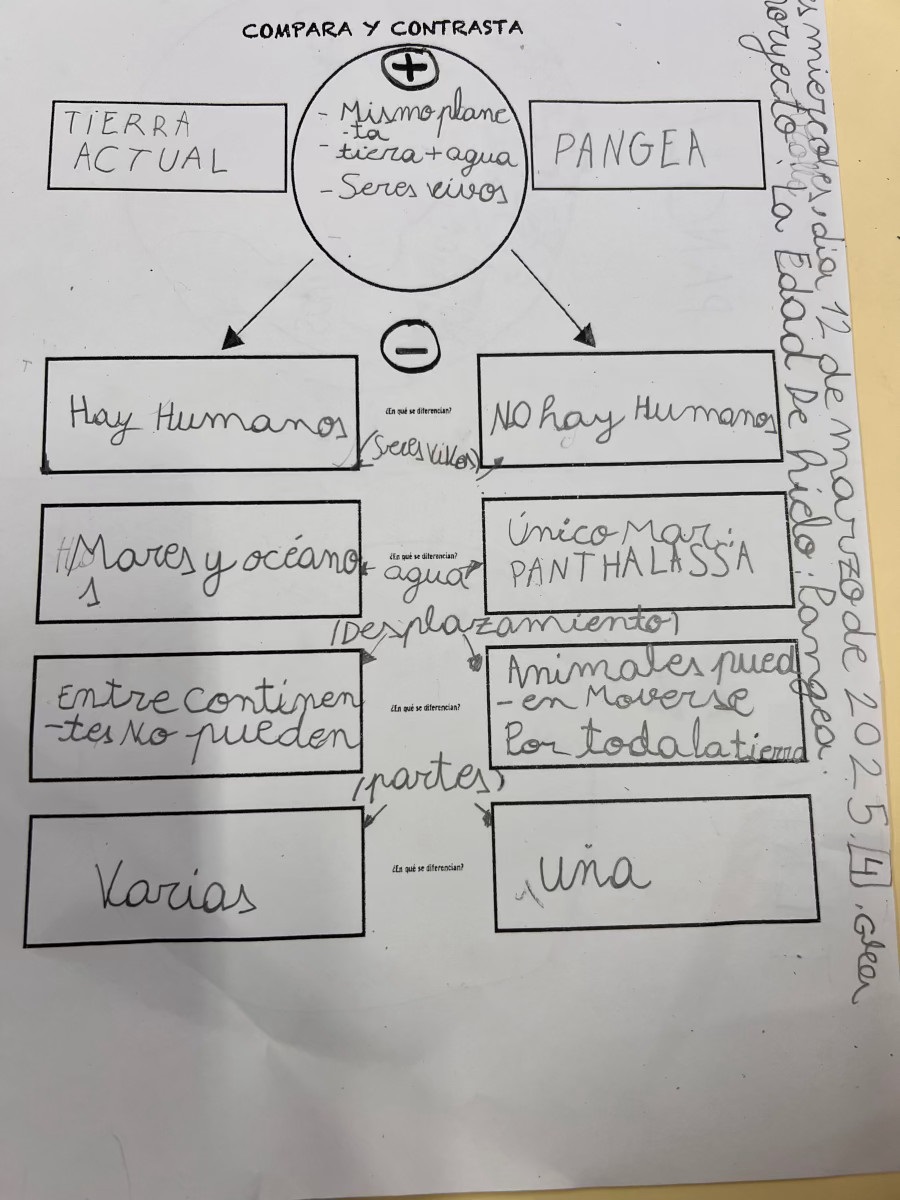 COMPARA Y CONTRASTA
+
TIERRA
ACTUAL
- Mismo plane
-ta
- tiera + agua
- Seres vivos
PANGEA
−
Hay Humanos
¿En qué se diferencian?
(Seres vivos)
NO hay Humanos
Mares y océano
s
¿En qué se diferencian?
agua
Único Mar:
PANTHALASSA
(Desplazamiento)
Entre continen
-tes No pueden
¿En qué se diferencian?
Animales pued
-en Moverse
Por toda la tierra
(partes)
Varias
¿En qué se diferencian?
Uña
es miercoles, día 12 de marzo de 2025. 4.
proryecto: La Edad De hielo: Pangea.